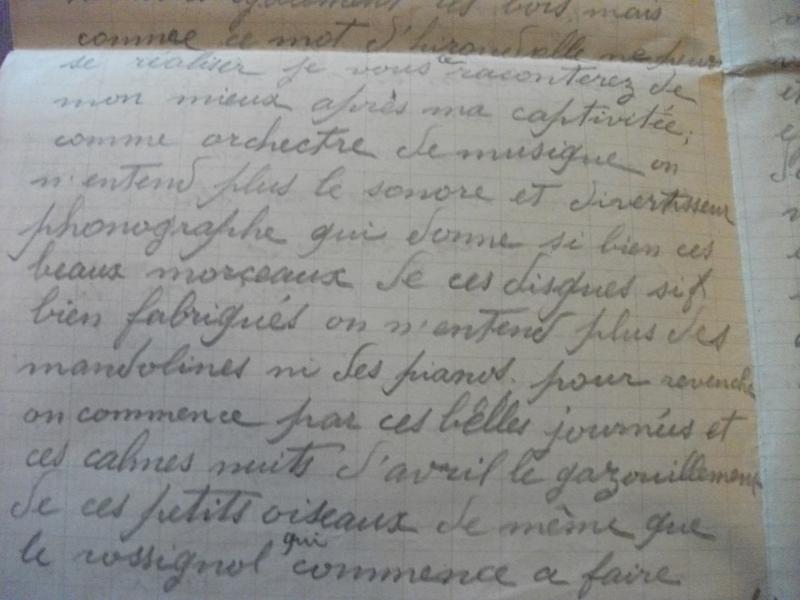 également les bois mais
comme ce mot d'hirondelle ne peut
se réaliser je vous le raconterez de
mon mieux après ma captivitée;
comme orchectre de musique on
n'entend plus le sonore et divertisseur
phonographe qui donne si bien ces
beaux morçeaux de ces disques si
bien fabriqués on n'entend plus des
mandolines ni des pianos, pour revenche
on commence par ces bêlles journées et
ces calmes nuits d'avril le gazouillement
de ces petits oiseaux de même que
le rossignol qui commence a faire